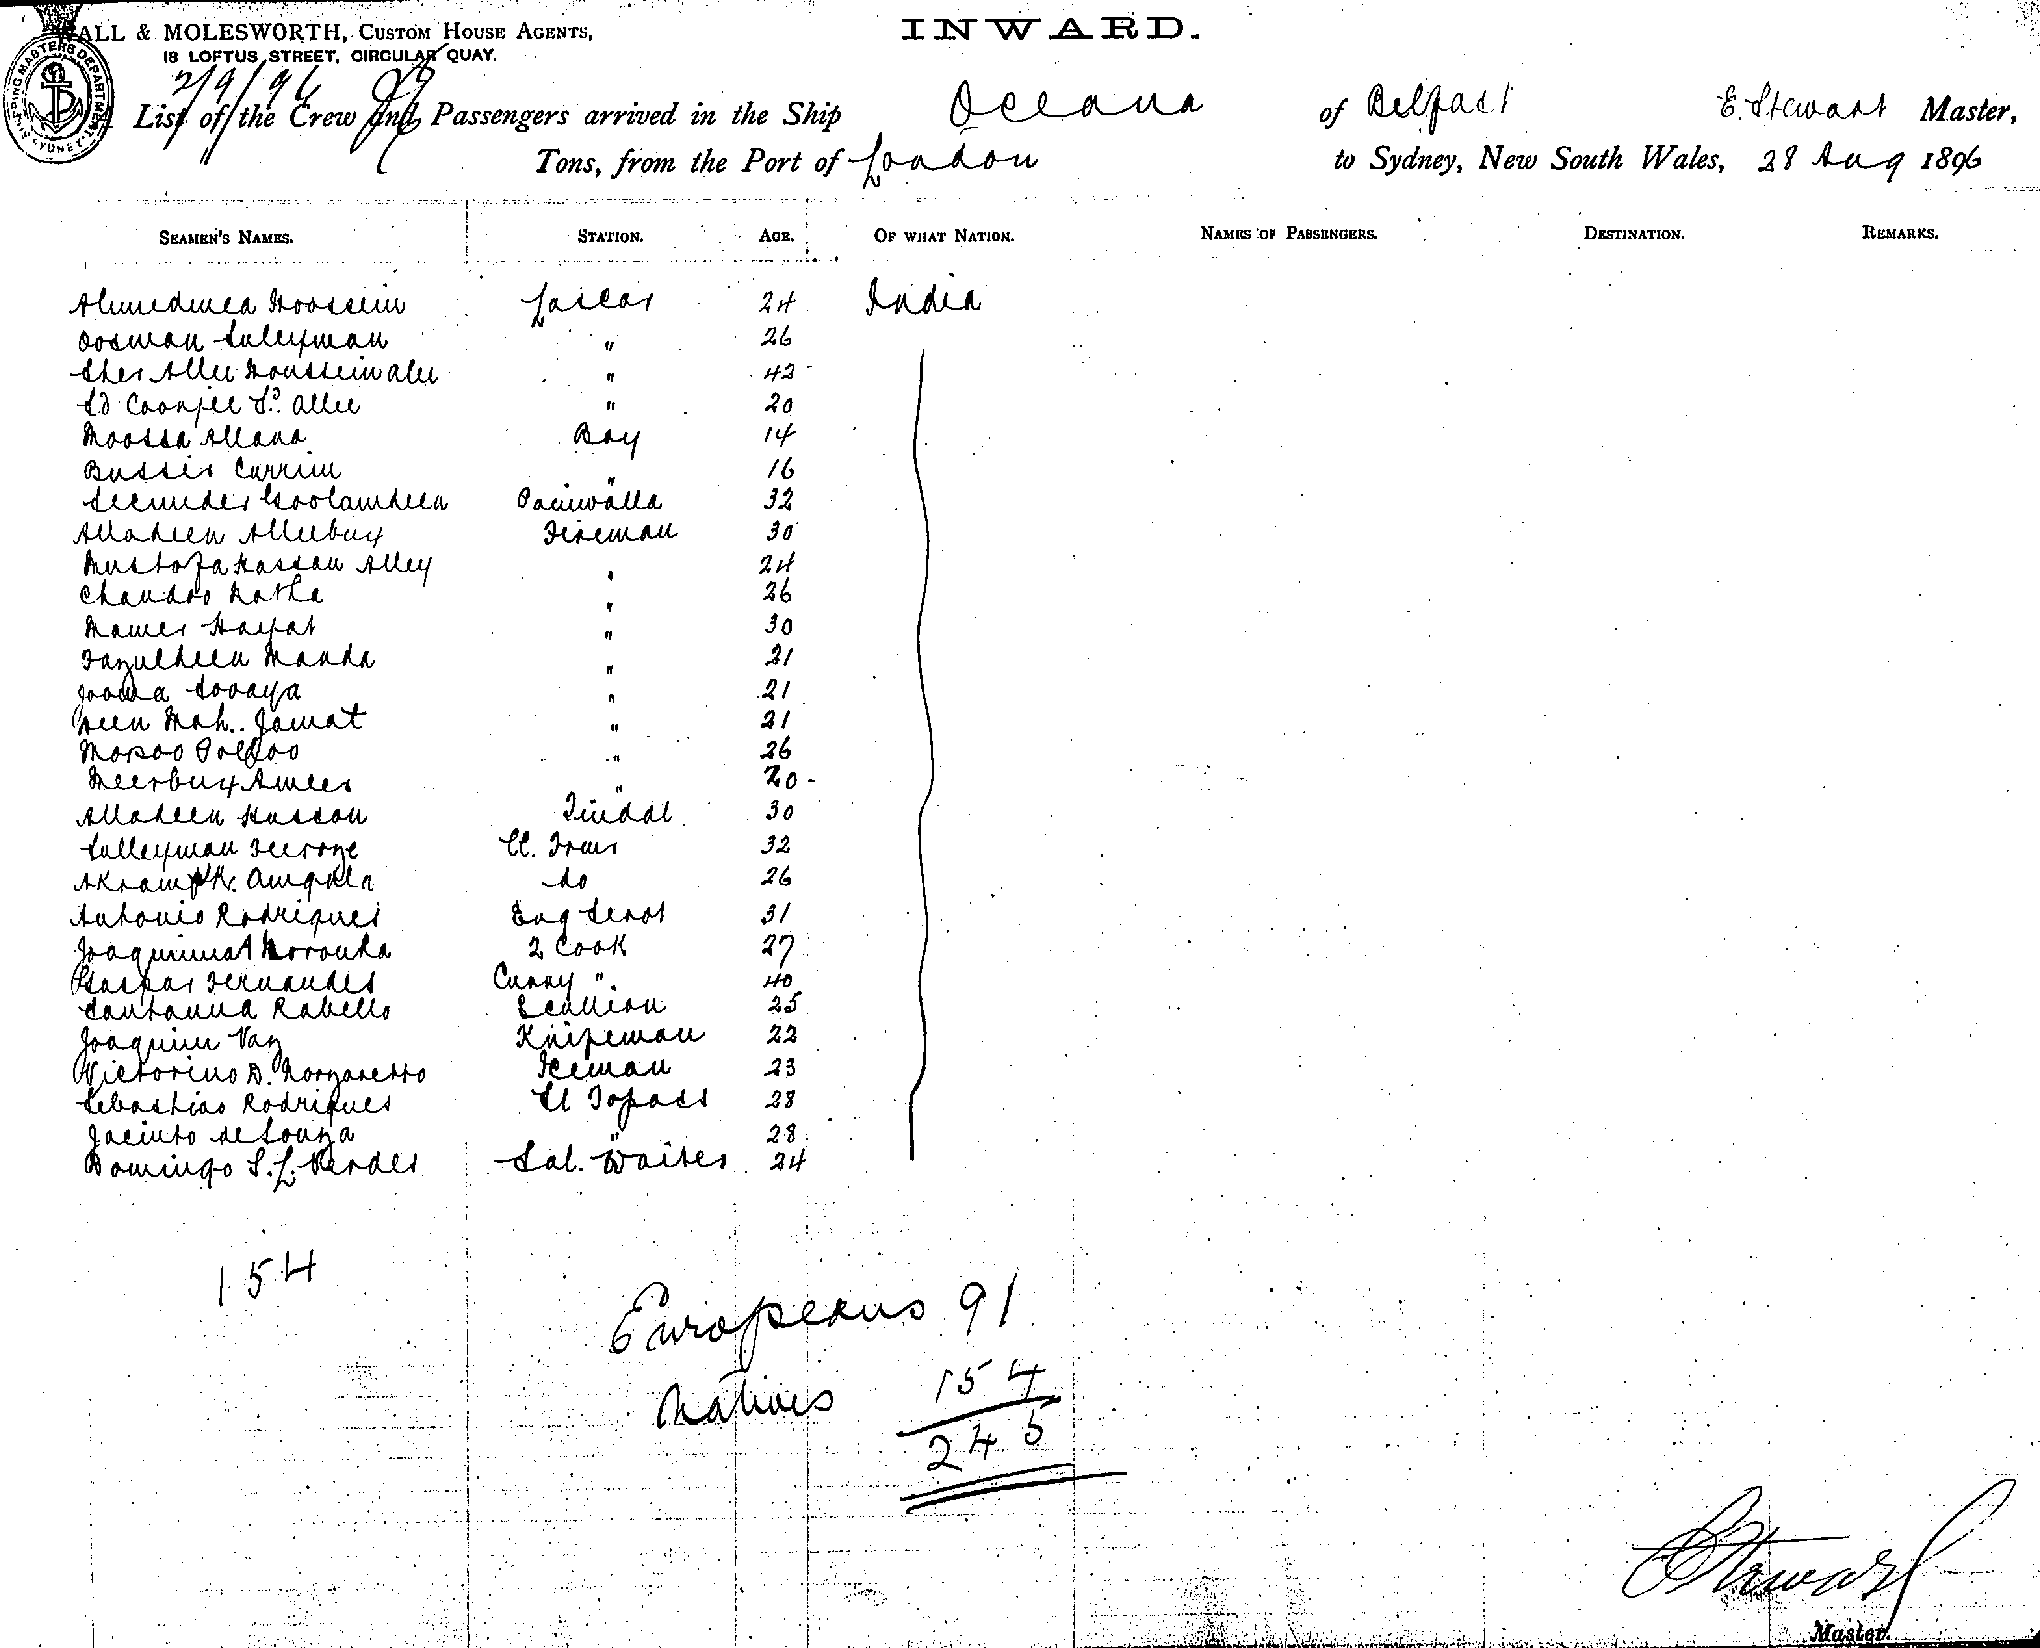 WALL & MOLESWORTH, CUSTOM HOUSE AGENTS,
18 LOFTUS STREET, CIRCULAR QUAY.
INWARD.
SHIPPING MASTERS DEPARTMENT SYDNEY
2/9/96
List of the Crew and Passengers arrived in the Ship Oceana of Belfast E. Stewart Master,
Tons, from the Port of London to Sydney, New South Wales, 28 Aug 1896
SEAMEN'S NAMES. STATION. AGE. OF WHAT NATION. NAMES OF PASSENGERS. DESTINATION. REMARKS.
Ahmedmea Hoossein Lascar 24 India
Oosman Suleyman " 26
Sher Allee Housseinalee " 42
Sd Coonjee Sd. Allee " 20
Moossa Allana Boy 14
Bussir Currim " 16
Secunder Goolamdeen Paniwalla 32
Alladeen Alleebux Fireman 30
Mustofa Hassan Alley " 24
Chandoo Natha " 26
Mamer Hayat " 30
Fazuldeen Manda " 21
Jooma Sooaya " 21
Deen Mah.. Jamat " 21
Moraoo " 26
Meerbux Ameer " 20
Alladeen Hassan Tindal 30
Sulleyman Feeroze Cl. Traer 32
Akram do 26
Antonio Rodrigues Eng Servt 31
Joaquim A Noronha 2 Cook 27
Gaspar Fernandes Curry " 40
Santanna Rabello Scullion 25
Joaquim Vaz Knifeman 22
Victorino D. Iceman 23
Sebastiao Rodrigues Cl Topass 28
Jacinto de Souza " 28
Domingo S. L. Verdes Sal. Waiter 24
154
Europeans 91
Natives 154
245
E Stewart
Master.